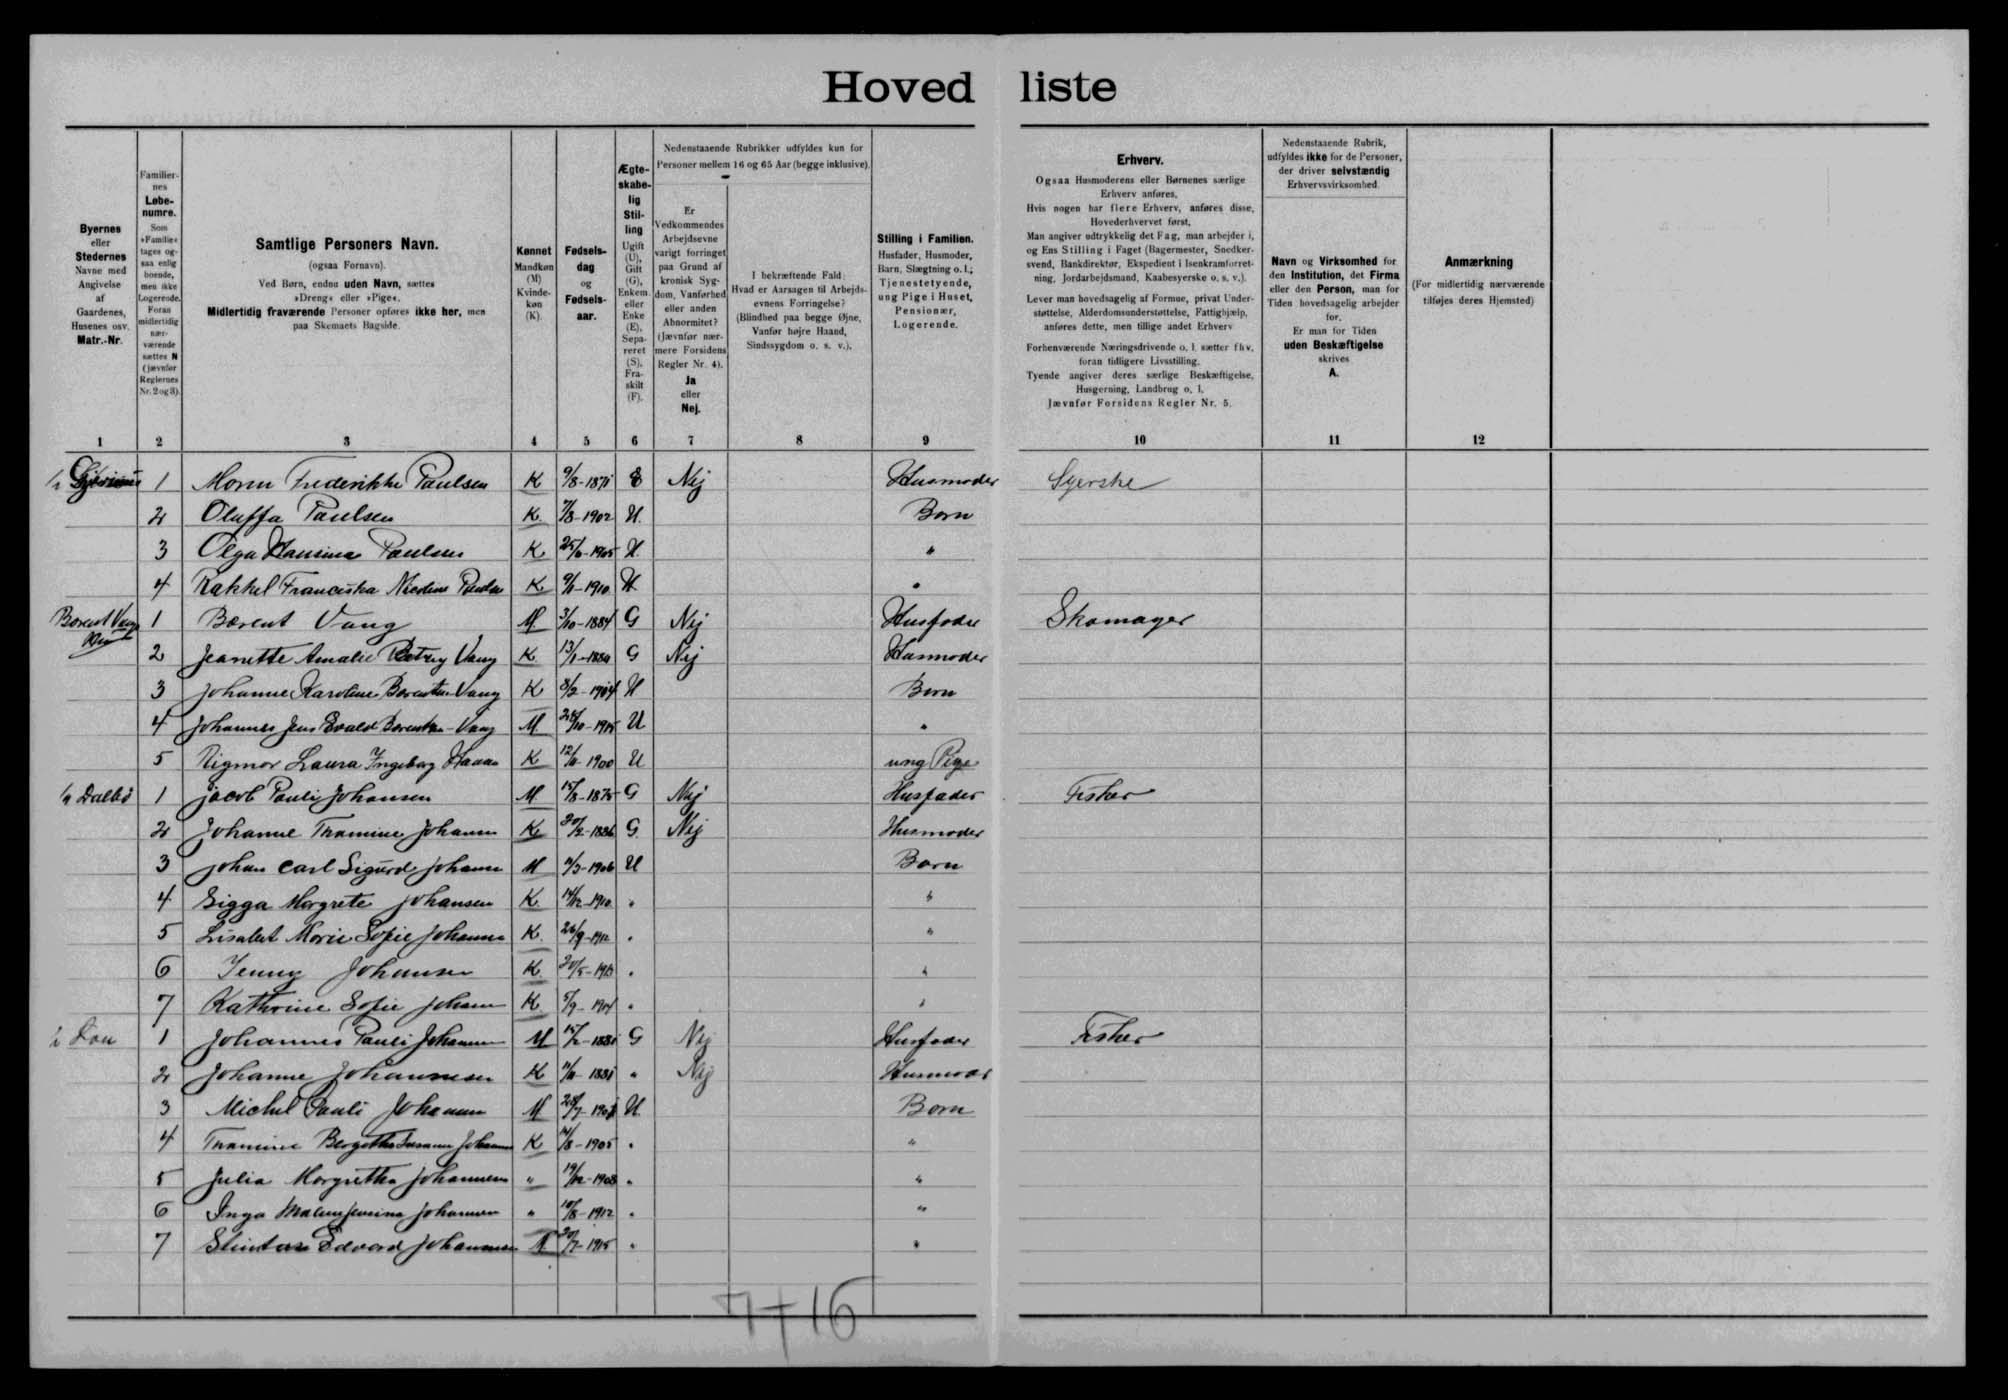 Hoved liste
Byernes
eller
Stedernes
Navne med
Angivelse
af
Gaardenes,
Husenes osv.
Matr.-Nr.
Familier-
nes
Løbe-
numre.
Som
»Familie«
tages og-
saa enlig
boende,
men ikke
Logerende.
Foran
midlertidig
nær-
værende
sættes N
(jævnfør
Reglernes
Nr. 2 og 3).
Samtlige Personers Navn.
(ogsaa Fornavn).
Ved Børn, endnu uden Navn, sættes
»Dreng« eller »Pige«.
Midlertidig fraværende Personer opføres ikke her, men
paa Skemaets Bagside.
Kønnet
Mandkøn
(M)
Kvinde-
køn
(K).
Fødsels-
dag
og
Fødsels-
aar.
Ægte-
skabe-
lig
Stil-
ling
Ugift
(U),
Gift
(G),
Enkem.
eller
Enke
(E),
Sepa-
reret
(S),
Fra-
skilt
(F).
Nedenstaaende Rubrikker udfyldes kun for
Personer mellem 16 og 65 Aar (begge inklusive).
Er
Vedkommendes
Arbejdsevne
varigt forringet
paa Grund af
kronisk Syg-
dom, Vanførhed
eller anden
Abnormitet?
(Jævnfør nær-
mere Forsidens
Regler Nr. 4).
Ja
eller
Nej.
I bekræftende Fald:
Hvad er Aarsagen til Arbejds-
evnens Forringelse?
(Blindhed paa begge Øjne,
Vanfør højre Haand,
Sindssygdom o. s. v.).
Stilling i Familien.
Husfader, Husmoder,
Barn, Slægtning o. l.;
Tjenestetyende,
ung Pige i Huset,
Pensionær,
Logerende.
Erhverv.
Ogsaa Husmoderens eller Børnenes særlige
Erhverv anføres.
Hvis nogen har flere Erhverv, anføres disse,
Hovederhvervet først.
Man angiver udtrykkelig det Fag, man arbejder i,
og Ens Stilling i Faget (Bagermester, Snedker-
svend, Bankdirektør, Ekspedient i Isenkramforret-
ning, Jordarbejdsmand, Kaabesyerske o. s. v.).
Lever man hovedsagelig af Formue, privat Under-
støttelse, Alderdomsunderstøttelse, Fattighjælp,
anføres dette, men tillige andet Erhverv
Forhenværende Næringsdrivende o. l. sætter fhv.
foran tidligere Livsstilling.
Tyende angiver deres særlige Beskæftigelse,
Husgerning, Landbrug o. l.
Jævnfør Forsidens Regler Nr. 5.
Nedenstaaende Rubrik,
udfyldes ikke for de Personer,
der driver selvstændig
Erhvervsvirksomhed.
Navn og Virksomhed for
den Institution, det Firma
eller den Person, man for
Tiden hovedsagelig arbejder
for.
Er man for Tiden
uden Beskæftigelse
skrives
A.
Anmærkning
(For midlertidig nærværende
tilføjes deres Hjemsted)
1 2 3 4 5 6 7 8 9 10 11 12
1 Frederikke Paulsen K 9/8-1871 E Nej Husmoder Syerske
2 Oluffa Paulsen K. 7/8-1902 U. Barn
3 Olga Hansina Paulsen K 1905 U. "
4 Rakkel Franciska K 1910 U "
Berent Vang 1 Berent Vang M. 3/10-1884 G Nej Husfader Skomager
2 Jeanette Amalie Vang K. G Nej Husmoder
3 Johanne Karoline Vang K 8/2-1914 U Barn
4 Johannes Jens Evald Vang M. 1915 U "
5 Rigmor Laura Ingeborg K 1900 U ung Pige
1 Jacob Pauli Johansen M 15/8-1875 G Nej Husfader Fisker
2 Johanne Johansen K 1886 G. Nej Husmoder
3 Johan Carl Sigurd Johansen M 1906 U Barn
4 Sigga Margrete Johansen K. 14/12-1910 " "
5 Marie Sofie Johansen K. 26/9-1912 " "
6 Jenny Johansen K. "
7 Kathrine Sofie Johansen K. 5/9-1904 " "
1 Johannes Pauli Johannesen M G Nej Husfader Fisker
2 Johanne Johannesen K 1881 " Nej Husmoder
3 Michel Pauli Johannesen M U. Barn
4 Susanne Johannesen K 1905 " "
5 Julia Margretha Johannesen " 19/12-1908 " "
6 Inga Johannesen " 10/8-1912 " "
7 Edvard Johannesen M 30/7-1915 " "
7+16